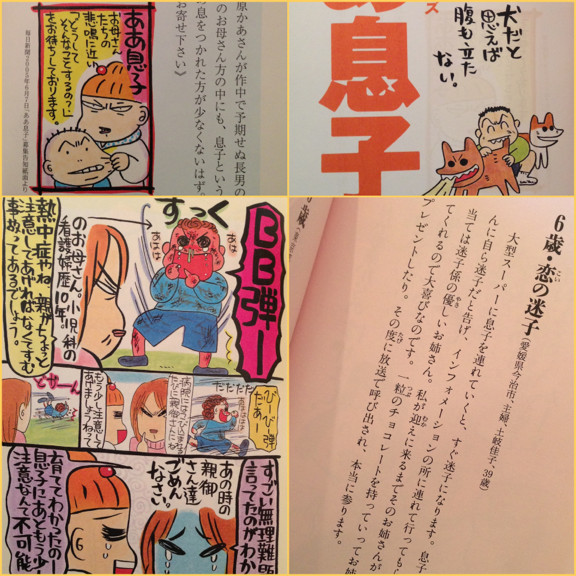 ああ息子
お母さん
たちの
悲鳴に近い、
「どうして
そんなことするの?」
をお待ちしております。
原かあさんが作中で予期せぬ長男の
のお母さん方の中にも、息子という
の息をつかれた方が少なくないはず。
お寄せ下さい》
ズ
息子
犬だと
思えば
腹も立た
ない。
BB弾ー
すっく
あはは
あはは
のお母さん。小児科の
看護婦歴10年!!
親がちょっと
注意してあげれば
あるでしょう。
びーびー弾
だぁー
ダダダダ
もう少し注意して
あげましょうねって
どせーん
すごい無理難題
言ってたのがわか
あの時の
親御
さん達
ごめん
なさい。
育ててわかったのー
息子にあともう少し
注意なんて不可能
6歳・恋の迷子
こい
(愛媛県今治市、主婦、土岐佳子、39歳)
大型スーパーに息子を連れていくと、すぐ迷子になります。息子
んに自ら迷子だと告げ、インフォメーションの所に連れて行っても
当ては迷子係の優しいお姉さん。私が迎えに来るまでそのお姉さんが
てくれるので大喜びなのです。一粒のチョコレートを持っていってお姉
プレゼントしたり。その度に放送で呼び出され、本当に参ります。